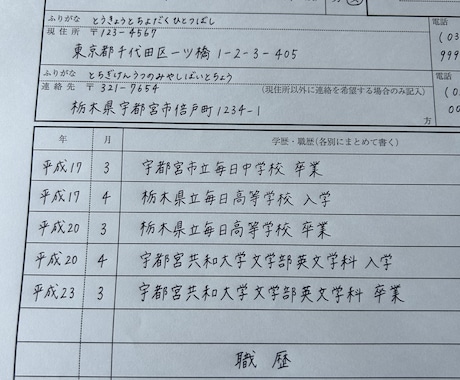 ふりがな とうきょうとちよだくひとつばし
現住所 〒123-4567
東京都千代田区一ツ橋1-2-3-405
電話
(03
999
ふりがな とちぎけんうつのみやしばいとちょう
連絡先 〒321-7654 (現住所以外に連絡を希望する場合のみ記入)
栃木県宇都宮市倍戸町1234-1
方
電話
(0
00
年 月 学歴・職歴(各別にまとめて書く)
平成17 3 宇都宮市立毎日中学校 卒業
平成17 4 栃木県立毎日高等学校 入学
平成20 3 栃木県立毎日高等学校 卒業
平成20 4 宇都宮共和大学文学部英文学科 入学
平成23 3 宇都宮共和大学文学部英文学科 卒業
職歴